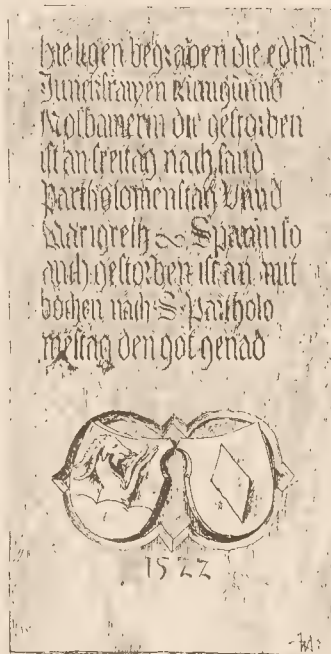 hie ligen begraben die edln̄
Junckfrawen kunigund
Noſhamerin die geſtorben
iſt an freitag nach ſand
Partholomeuſtag Vnnd
Margreth Spanin ſo
auch geſtorben iſt an mit
bochen nach S. Partholo
meſtag den got genad
1522